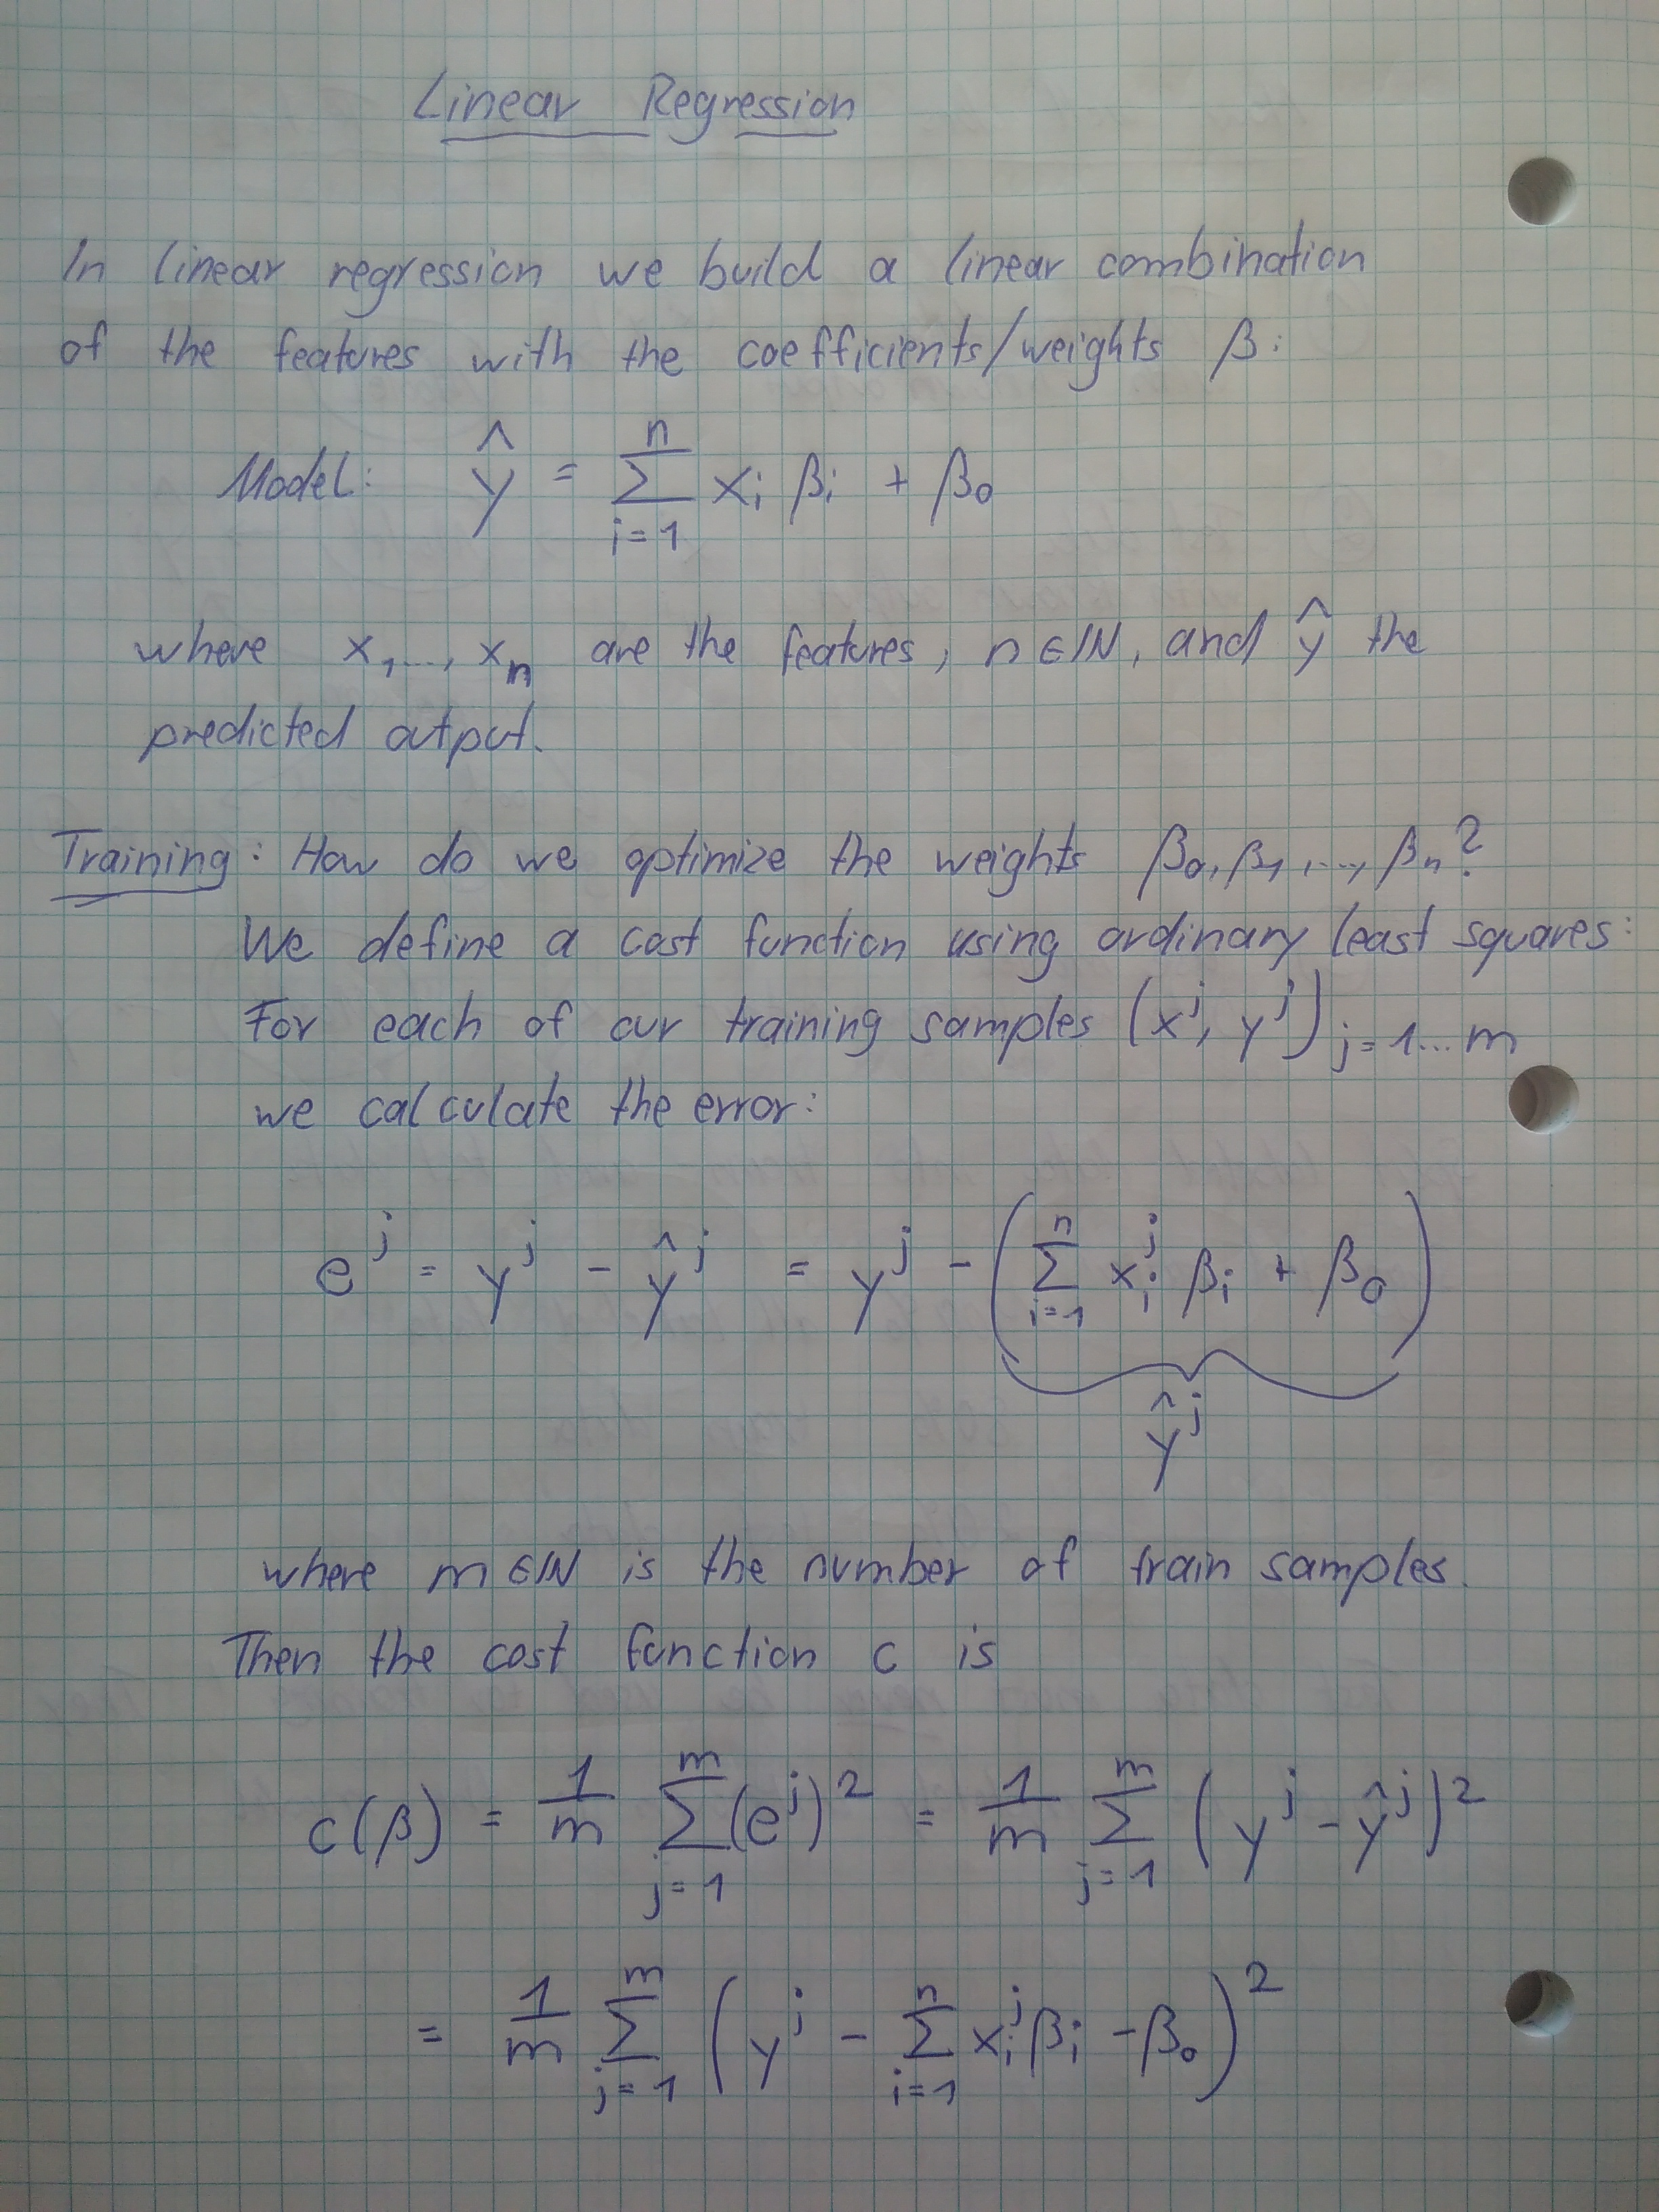 Linear Regression
In linear regression we build a linear combination
of the features with the coefficients/weights β:
Model: ŷ = ∑_{i=1}^{n} x_i β_i + β_0
where x_1, ..., x_n are the features, n ∈ ℕ, and ŷ the
predicted output.
Training: How do we optimize the weights β_0, β_1, ..., β_n?
We define a cost function using ordinary least squares:
For each of our training samples (x^j, y^j)_{j=1...m}
we calculate the error:
e^j = y^j - ŷ^j = y^j - (∑_{i=1}^{n} x_i^j β_i + β_0)
ŷ^j
where m ∈ ℕ is the number of train samples.
Then the cost function c is
c(β) = 1/m ∑_{j=1}^{m} (e^j)^2 = 1/m ∑_{j=1}^{m} (y^j - ŷ^j)^2
= 1/m ∑_{j=1}^{m} (y^j - ∑_{i=1}^{n} x_i^j β_i - β_0)^2